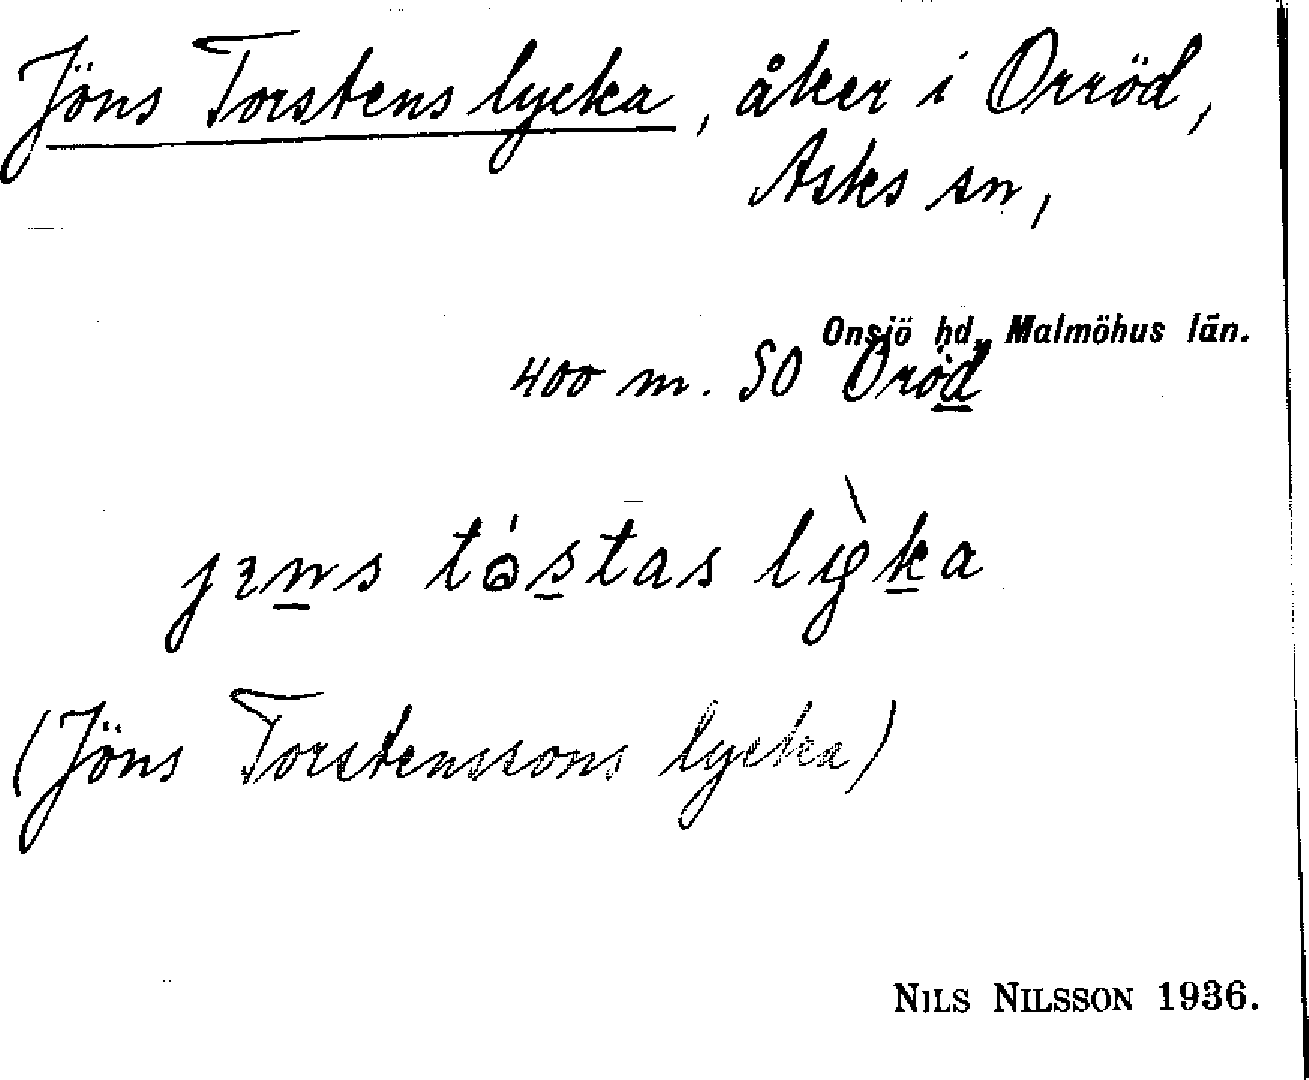 Jöns Torstens lycka, åker i Orröd,
Asks sn,
Onsjö hd, Malmöhus län.
400 m. SO Oröd
tóstas
(Jöns Torstenssons lycka)
NILS NILSSON 1936.